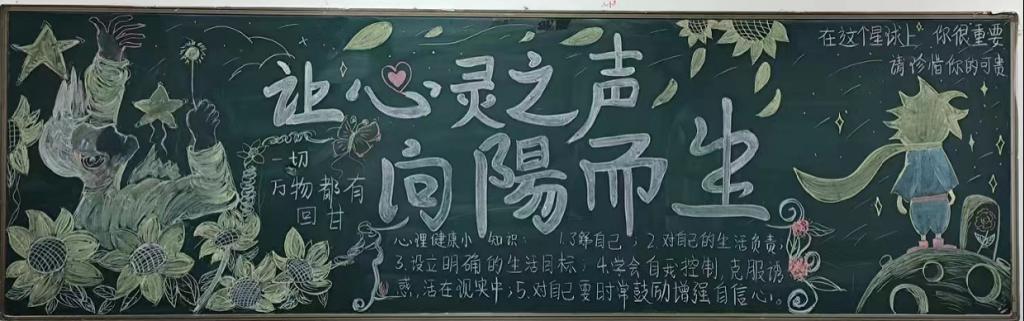 让心灵之声
向陽而生
在这个星球上 你很重要
请珍惜你的可贵
一切
万物都有
回甘
心理健康小知识：1.了解自己；2.对自己的生活负责；
3.设立明确的生活目标；4.学会自我控制,克服诱
惑,活在现实中；5.对自己要时常鼓励增强自信心。